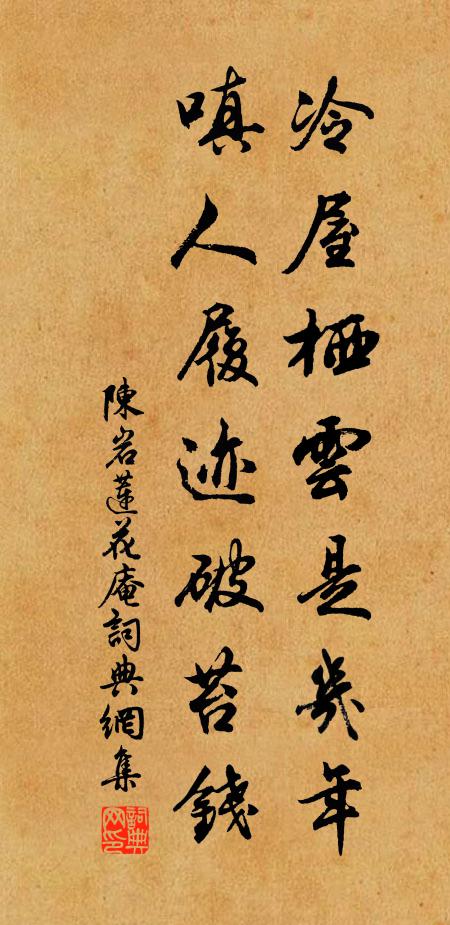 冷屋栖雲是幾年
嗔人履迹破苔錢
陳岩蓮花庵詞典網集
詞典网印